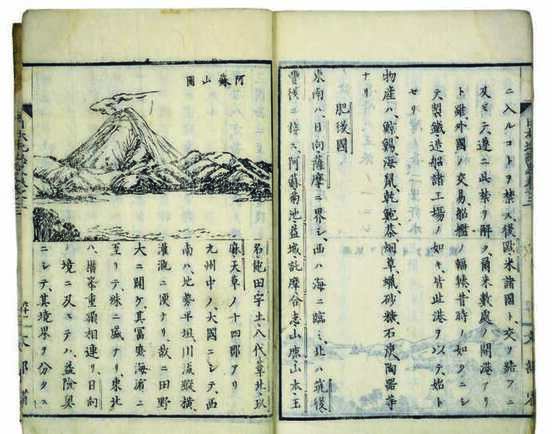 ニ入ルコトヲ禁ス後歐米諸國ト交ヲ結フニ
及ヒテ遂ニ此禁ヲ解ク爾來數處ノ開港アリ
ト雖外國ノ交易船艦ノ輻輳昔時ノ如クニシ
テ製鐵造船諸工場ノ如キ皆此港ヲ以テ始ト
セリ
物産ハ鯨鯣海鼠乾鮑茶烟草蠟砂糖石炭陶器等
ナリ
肥後國
東南ハ日向薩摩ニ界シ西ハ海ニ臨ミ北ハ筑後
豐後ニ接ス阿蘇菊池益城託摩合志山鹿山本玉
阿蘇山圖
名飽田宇土八代葦北球
麻天草ノ十四郡アリ
九州中ノ大國ニシテ西
南ハ地勢平坦川流縱橫
灌漑ニ便ナリ故ニ田野
大ニ開ケ其富庶海浦ニ
至リテ殊ニ盛ナリ東北
ハ層峯重嶺相連リ日向
境ニ及ヒテハ益險奧
ニシテ其境界ヲ分タス